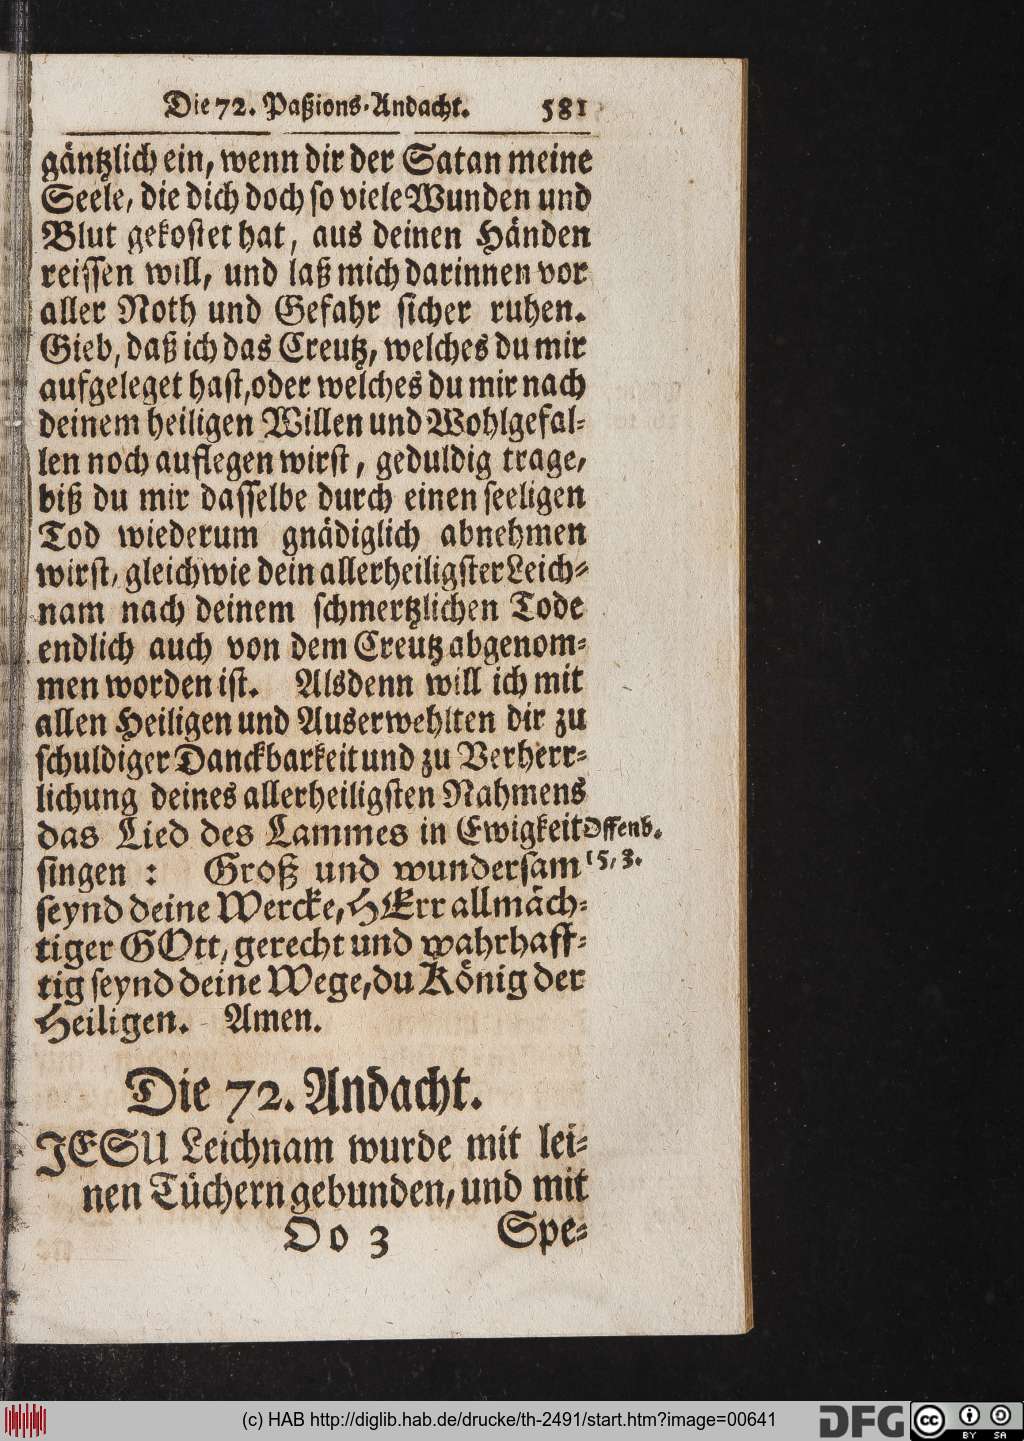 Die 72. Paßions-Andacht. 581
gäntzlich ein, wenn dir der Satan meine
Seele, die dich doch so viele Wunden und
Blut gekostet hat, aus deinen Händen
reissen will, und laß mich darinnen vor
aller Noth und Gefahr sicher ruhen.
Gieb, daß ich das Creutz, welches du mir
aufgeleget hast, oder welches du mir nach
deinem heiligen Willen und Wohlgefal-
len noch auflegen wirst, geduldig trage,
biß du mir dasselbe durch einen seeligen
Tod wiederum gnädiglich abnehmen
wirst, gleichwie dein allerheiligster Leich-
nam nach deinem schmertzlichen Tode
endlich auch von dem Creutz abgenom-
men worden ist. Alsdenn will ich mit
allen Heiligen und Auserwehlten dir zu
schuldiger Danckbarkeit und zu Verherr-
lichung deines allerheiligsten Nahmens
das Lied des Lammes in Ewigkeit Offenb.
singen: Groß und wundersam 15, 3.
seynd deine Wercke, HErr allmäch-
tiger GOtt, gerecht und wahrhaff-
tig seynd deine Wege, du König der
Heiligen. Amen.
Die 72. Andacht.
JESU Leichnam wurde mit lei-
nen Tüchern gebunden, und mit
Oo 3 Spe-
(c) HAB http://diglib.hab.de/drucke/th-2491/start.htm?image=00641
DFG cc BY SA